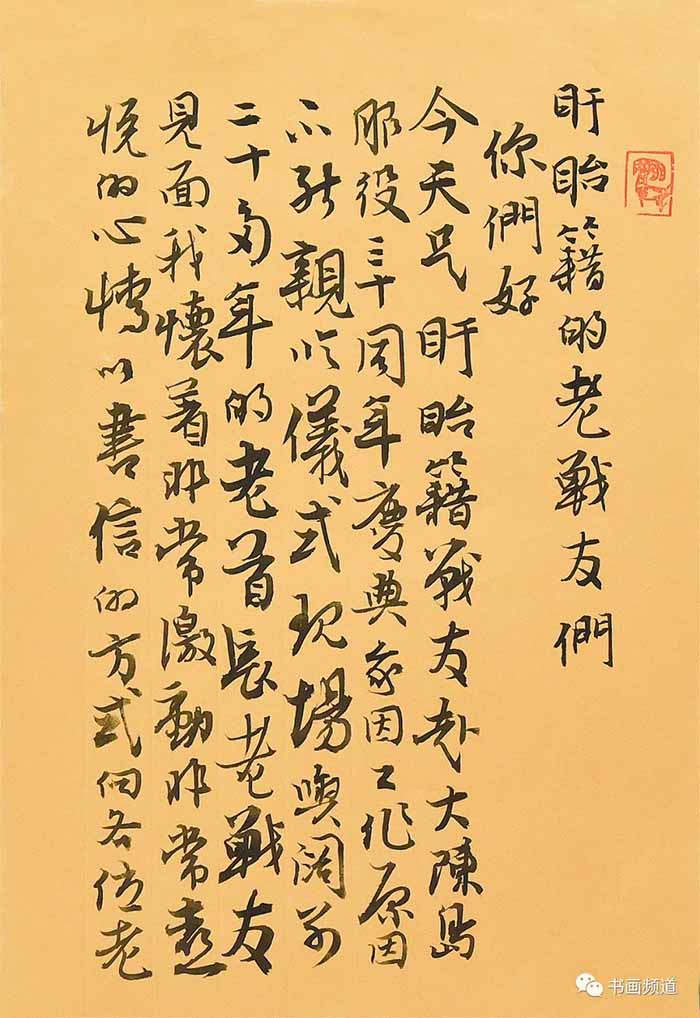 盱眙籍的老戰友們
你們好
今天是盱眙籍戰友赴大陳島
服役三十周年慶典我因工作原因
不能親臨儀式現場與闊別
二十多年的老首長老戰友
見面我懷着非常激動非常喜
悅的心情以書信的方式向各位老
书画频道